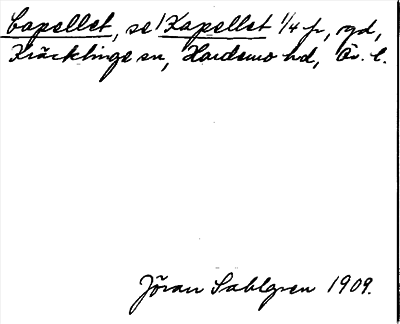 Capellet, se! Kapellet 1/4 fr, rgd,
Kräcklinge sn, Hardemo hd, Ör. l.
Jöran Sahlgren 1909.